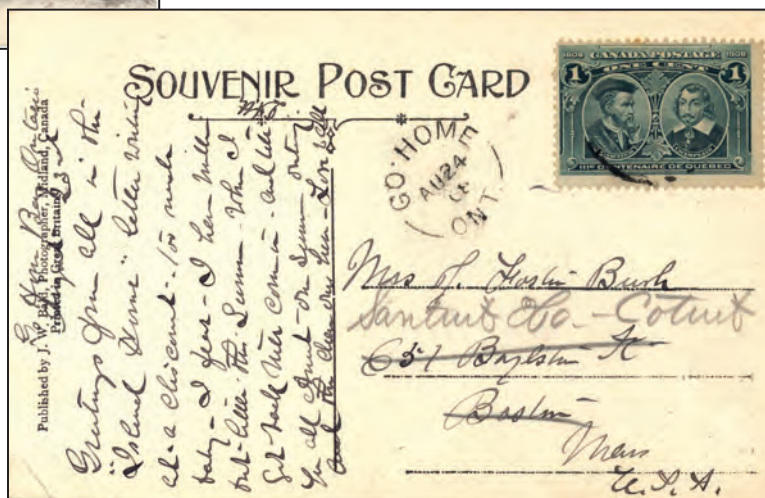 SOUVENIR POST CARD
1608 CANADA POSTAGE 1908
ONE CENT
1 1
CARTIER CHAMPLAIN
IIIe CENTENAIRE DE QUÉBEC
GO·HOME
AU 24
ONT.
Published by J. W. Bald, Photographer, Midland, Canada
Printed in Great Britain
Greetings from all in the
"Island Home" letter writing
at a discount - too much
baby - I fear - I have written
but little this Summer. When I
get back two come in - and tell
you all about our Summer outing
Love to all
Mrs J. Foster Bush
Santuit Ho. - Cotuit
651 Boylston St
Boston
Mass
U.S.A.